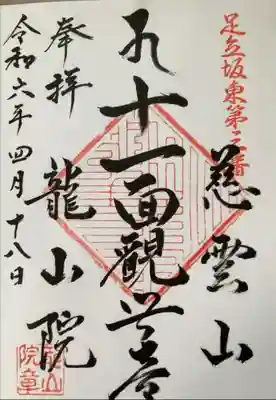 足立坂東第二番
慈雲山
十一面觀世音
奉拝
龍山院
令和六年四月十八日
龍山院章